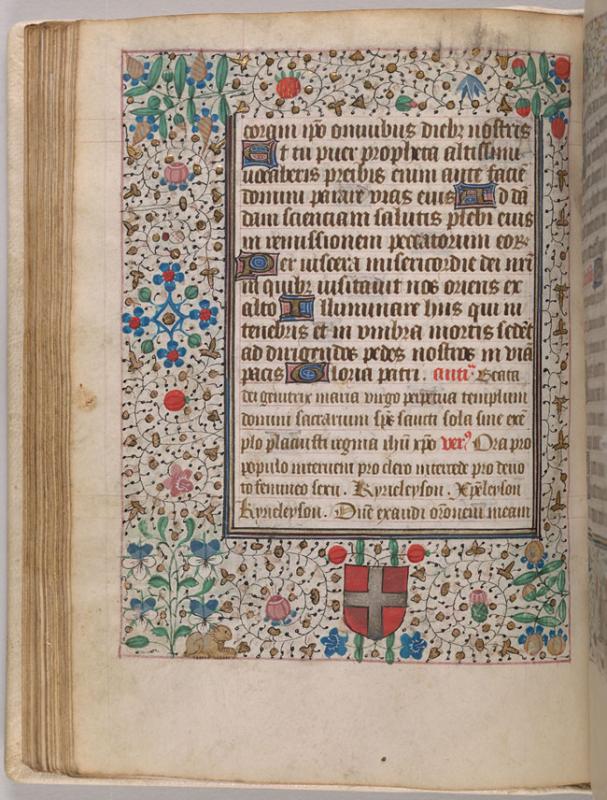 coram ipo omnibus diebz nostris
Et tu puer propheta altissimi
vocaberis preibis enim ante facie
domini parare vias eius Ad dā
dam scienciam salutis plebi eius
in remissionem peccatorum eorz
Per viscera misericordie dei nrī
in quibz visitavit nos oriens ex
alto Illuminare hiis qui in
tenebris et in vmbra mortis sedēt
ad dirigendos pedes nostros in viā
pacis Gloria patri. antiᵃ Beata
dei genitrix maria virgo perpetua templum
domini sacrarium spē sancti sola sine exē
plo placuisti regnia ihū xpō verꝰ Ora pro
populo interueni pro clero intercede pro deuo
to femineo sexu. Kyrieleyson. Xpēleyson
Kyrieleyson. Dnē exaudi orōnem meam